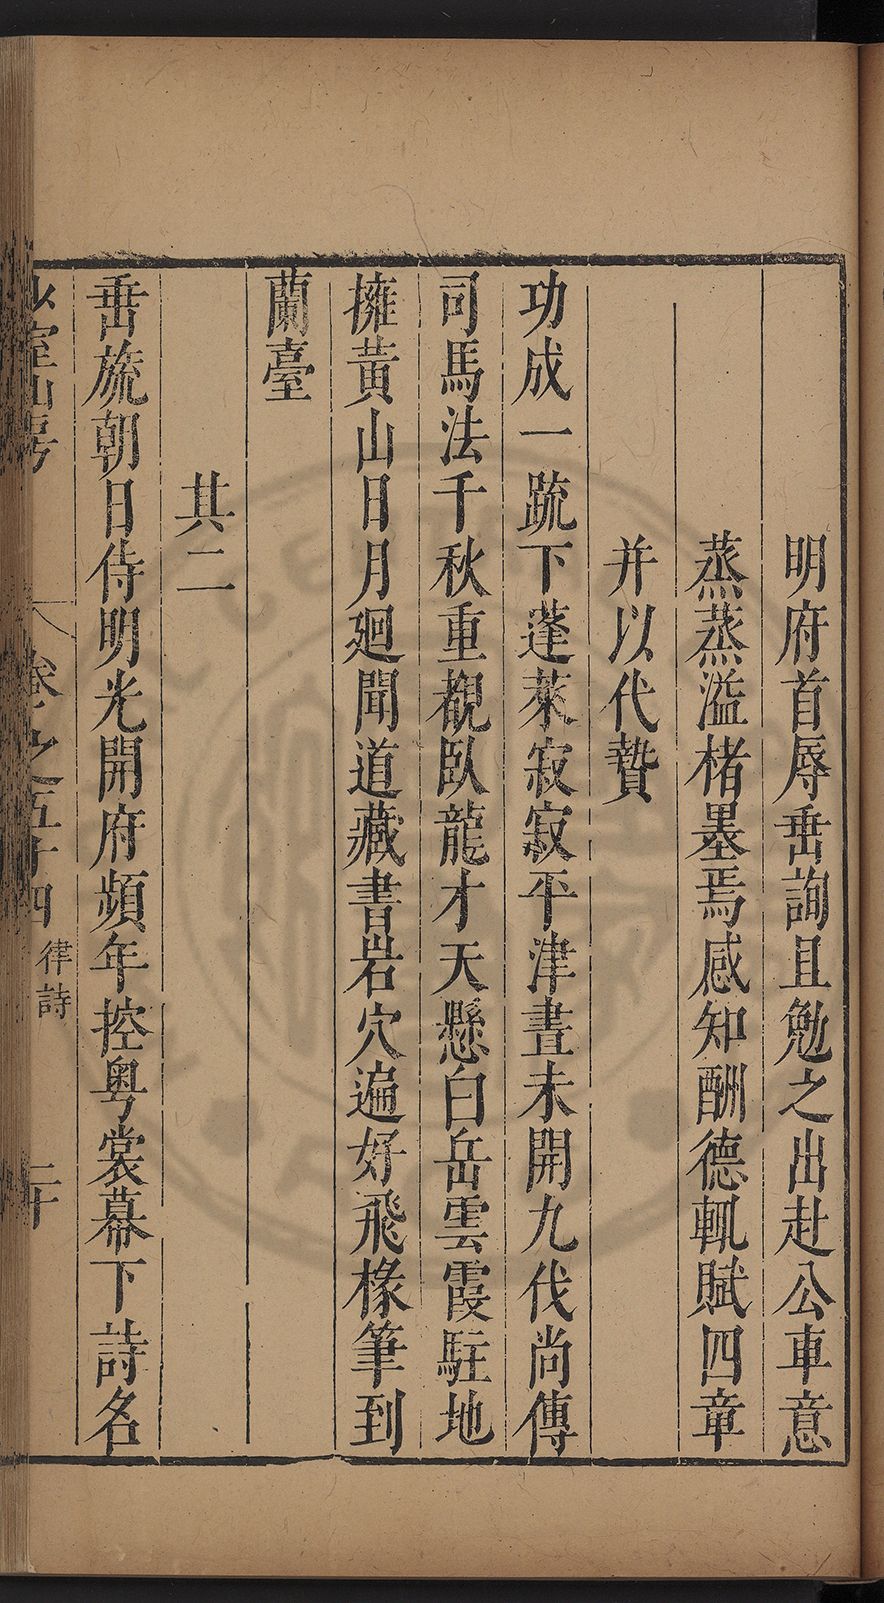 明府首辱垂詢且勉之出赴公車意
蒸蒸溢楮墨焉感知酬德輒賦四章
并以代贄
功成一疏下蓬萊寂寂平津晝未開九伐尚傳
司馬法千秋重覩臥龍才天懸白岳雲霞駐地
擁黃山日月廻聞道藏書岩穴遍好飛椽筆到
蘭臺
其二
垂旒朝日侍明光開府頻年控粵裳幕下詩名
少室山房 卷之五十四 律詩 二十